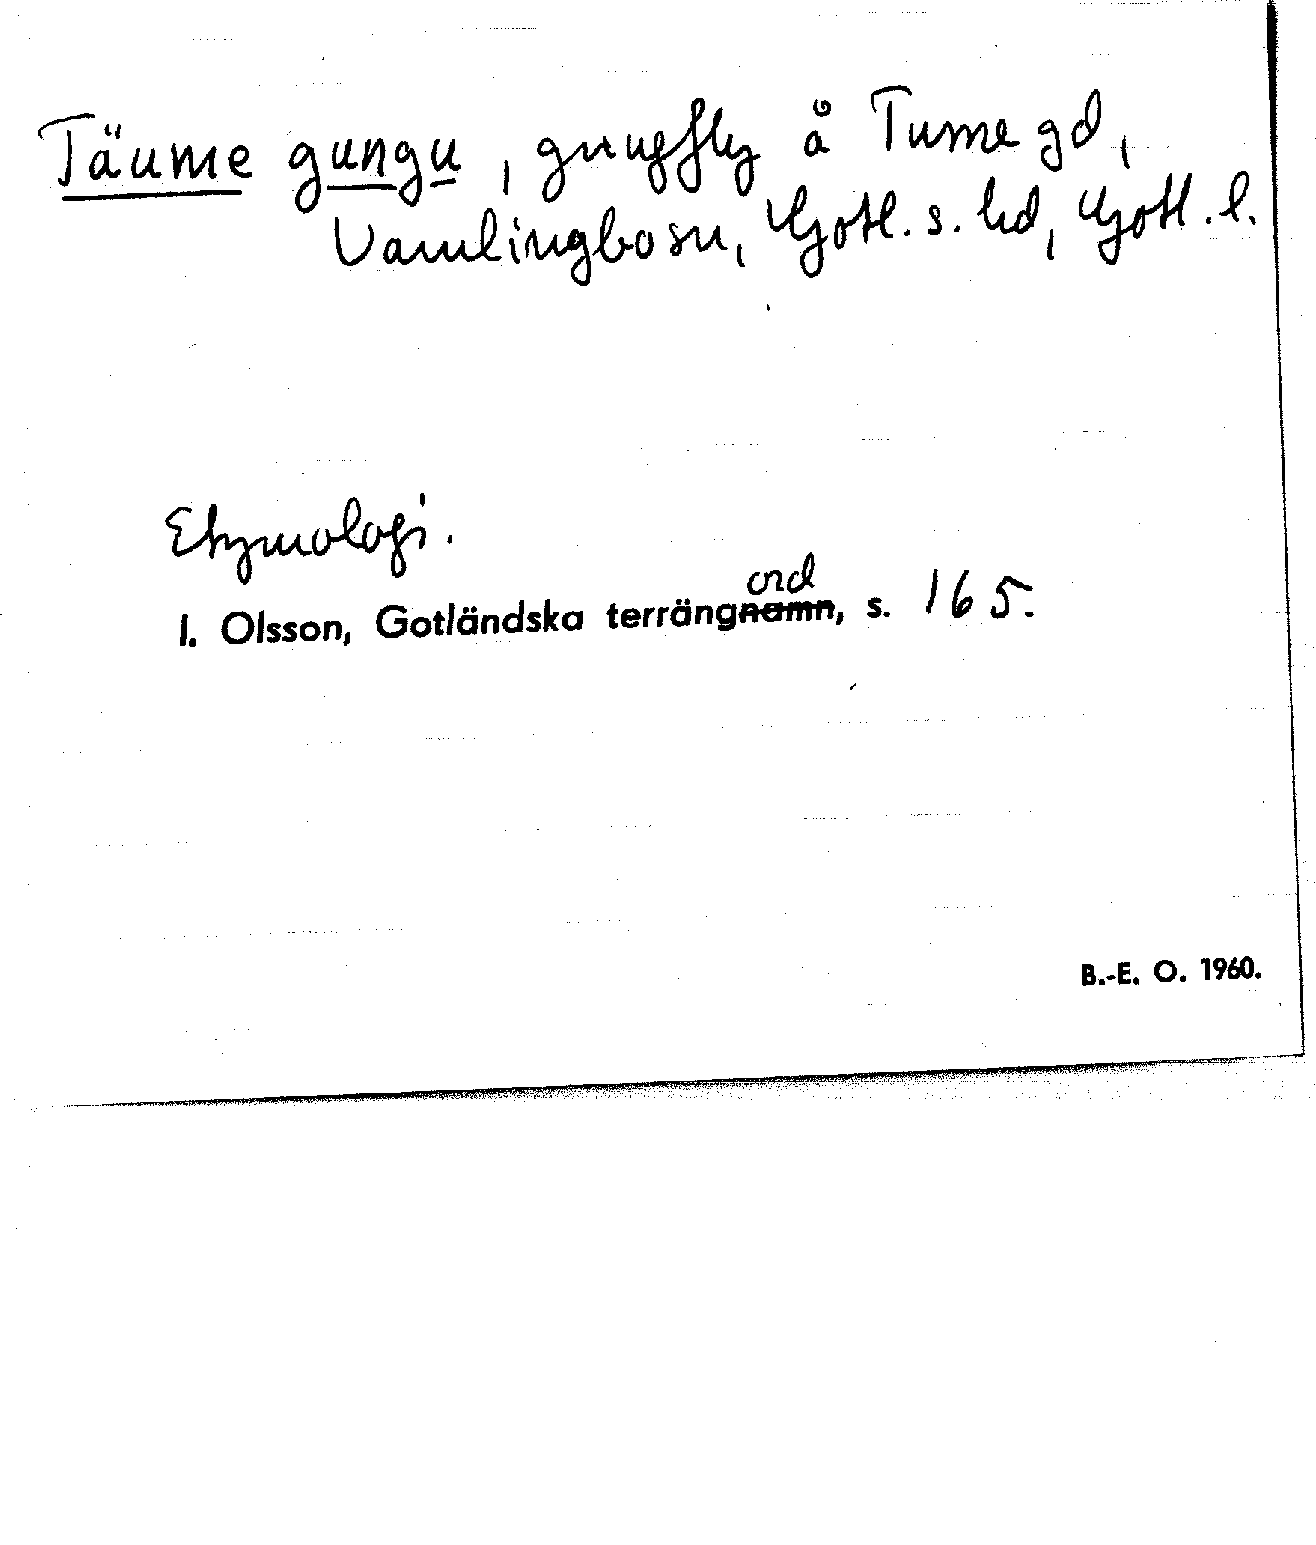 Täume gungu, gungfly å Tume gd,
Vamlingbo sn, Gotl. s. hd, Gotl. l.
Etymologi.
ord
I. Olsson, Gotländska terrängnamn, s. 165.
B.-E. O. 1960.